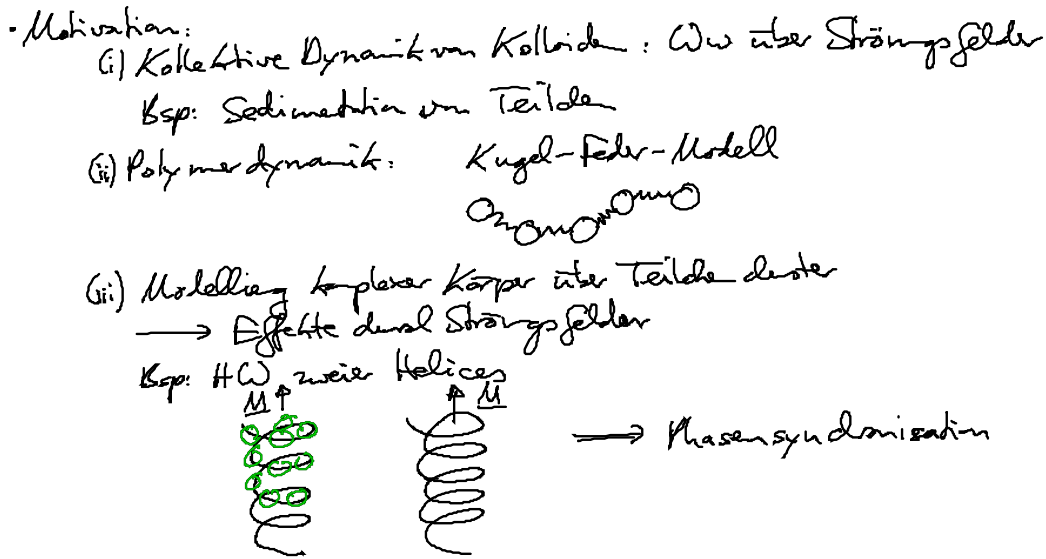 · Motivation:
(i) Kollektive Dynamik von Kolloiden: WW über Strömungsfelder
Bsp: Sedimentation von Teilchen
(ii) Polymerdynamik: Kugel-Feder-Modell
(iii) Modellierung komplexer Körper über Teilchencluster
→ Effekte durch Strömungsfelder
Bsp: HW zweier Helices
M M
⟹ Phasensynchronisation